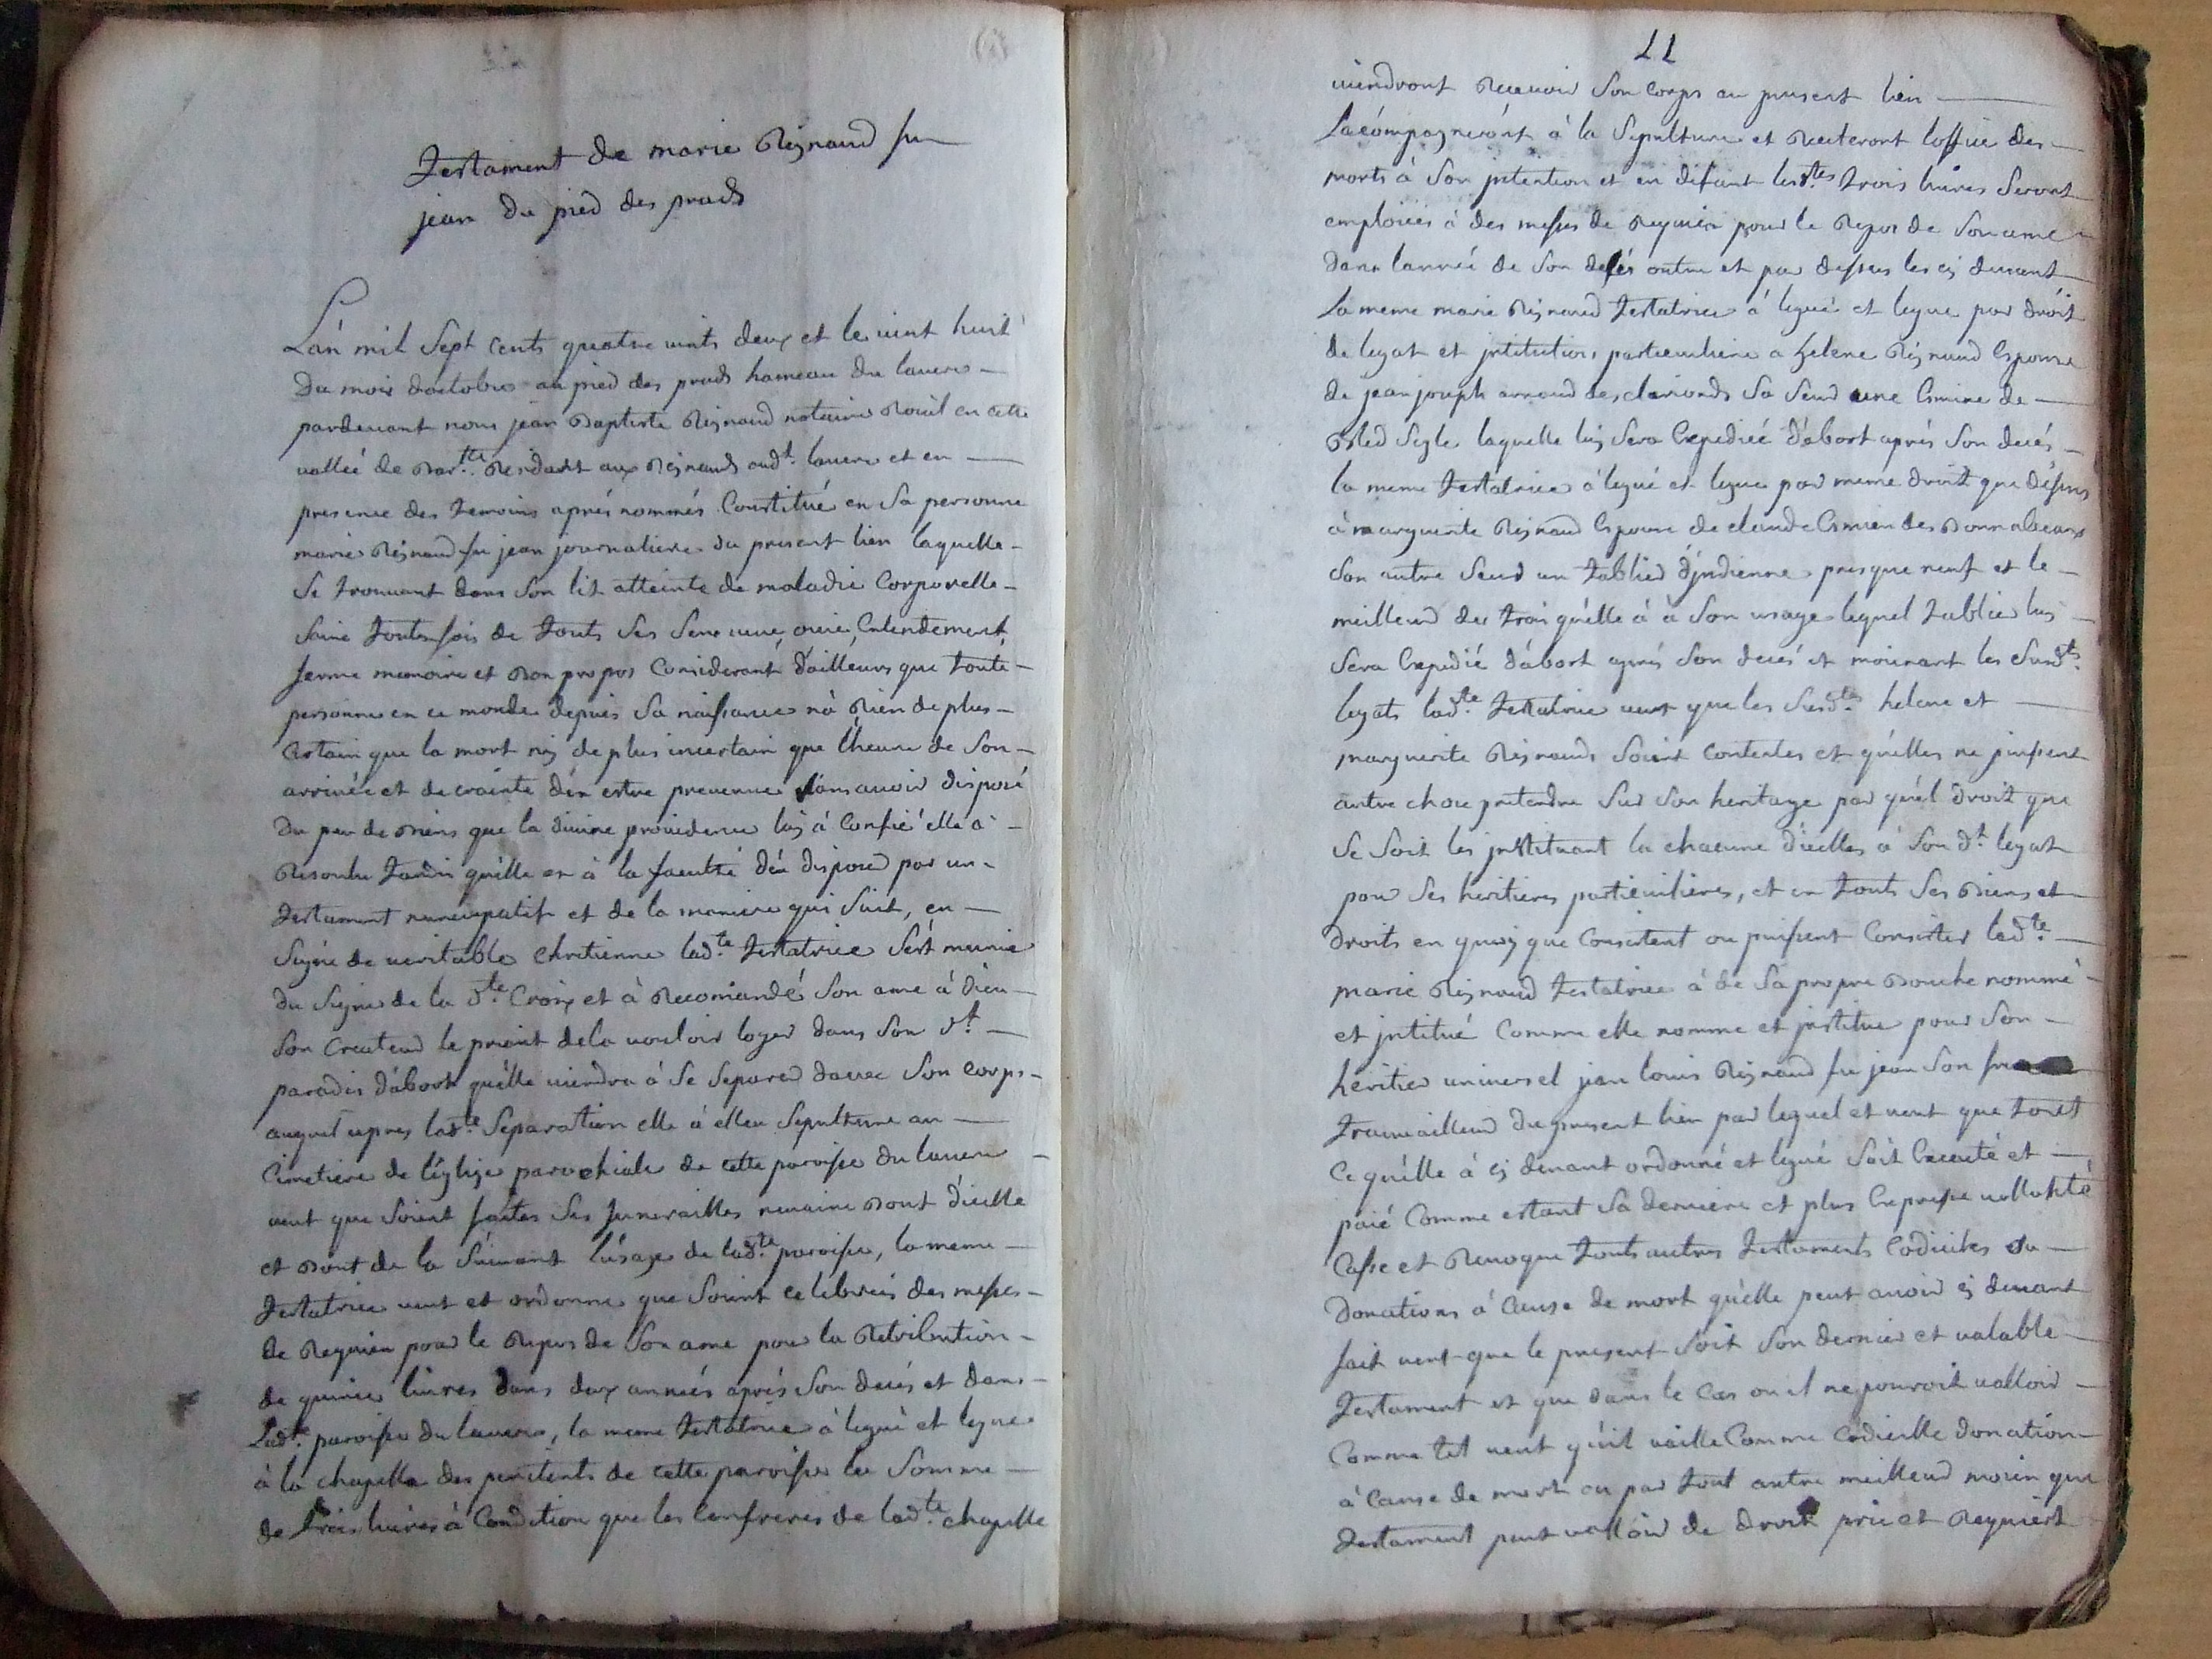 Testament de marie Reynaud fu
jean du pied des prads
L'an mil Sept cents quatre vints deux et le vint huit
du mois d'octobre au pied des prads hameau du lavere
pardevant nous jean Baptiste Reynaud notaire Roial en cette
vallée de Bar.tte Residant aux Reynauds aud.t lavere et en
presence des temoins aprés nommés Constitué en Sa personne
marie Reynaud fu jean journaliere du present lieu laquelle
Se trouvant dans Son lit atteinte de maladie Corporelle
Saine toutefois de touts Ses Sens veue, ouie, Entendement,
ferme memoire et Bon propos Considerant d'ailleurs que toute
personne en ce monde depuis Sa naissance n'à Rien de plus
Certain que la mort ny de plus incertain que l'heure de Son
arrivée et de crainte d'en estre prevenue Sans avoir disposé
du peu de Biens que la divine providence luy à Confié elle à
Resoulu tandis qu'elle en à la faculté d'en disposer par un
testament nuncupatif et de la maniere qui Suit, en
Signe de veritable chretienne lad.te testatrice S'est munie
du Signe de la S.te Croix et à Recomandé Son ame à dieu
Son Createur le priant de la vouloir loger dans Son S.t
paradis d'abort qu'elle viendra à Se Separer d'avec Son corps
auquel apres lad.te Separation elle à elleu Sepulture au
Cimetiere de l'église parochiale de cette paroisse du lavere
veut que Soient faites Ses funerailles neuvaine Bout d'icelle
et Bout de la Suivant l'usage de lad.te paroisse, la meme
testatrice veut et ordonne que Soient celebrées des messes
de Requiem pour le Repos de Son ame pour la Retribution
de quinze livres dans deux années aprés Son decés et dans
Lad.te paroisse du lavere, la meme testatrice à legué et legue
à la chapelle des penitents de cette paroisse la Somme
de trois livres à Condition que les Confreres de lad.te chapelle
11
viendront Recevoir Son Corps au present lieu
L'acompagneront à la Sepulture et Reciteront l'office des
morts à Son intention et en défaut lesd.tes trois livres Seront
emploiées à des messes de Requiem pour le Repos de Son ame
dans l'année de Son decés outre et par dessus les cy devant
La meme marie Reynaud testatrice à legué et legue par droit
de legat et jntitution particuliere a helene Reynaud Epouse
de jean joseph arnaud des clarionds Sa Seur une Emine de
Bled Segle laquelle luy Sera Expediée d'abort aprés Son decés
la meme testatrice à legué et legue par meme droit que dessus
à marguerite Reynaud Epouse de claude Esmien des
Son autre Seur un tablier d'jndienne presque neuf et le
meilleur des trois qu'elle à à Son usage lequel tablier luy
Sera Expedié d'abort aprés Son decés et moienant les Susd.ts
legats lad.te testatrice veut que les Susd.tes helene et
marguerite Reynauds Soient Contentes et qu'elles ne puissent
autre chose pretendre Sur Son heritage par qu'el droit que
Se Soit les jnstituant la chacune d'icelles à Son d.t legat
pour Ses heritieres particulieres, et en touts Ses Biens et
droits en quoy que Consistent ou puissent Consister lad.te
marie Reynaud testatrice à de Sa propre Bouche nommé
et jntitué Comme elle nomme et jnstitue pour Son
héritier universel jean louis Reynaud fu jean Son frere
travailleur du present lieu par lequel et veut que tout
Ce qu'elle à cy devant ordonné et legué Soit Executé et
paié Comme estant Sa derniere et plus Expresse vollonté
Casse et Revoque touts autres testaments Codiciles ou
donations à Cause de mort qu'elle peut avoir cy devant
fait veut que le present Soit Son dernier et valable
testament et que dans le Cas ou il ne pouroit valloir
Comme tel veut qu'il vaille Comme Codicille donation
à Cause de mort ou par tout autre meilleur moien que
testament peut valloir de droit prie et Requiert